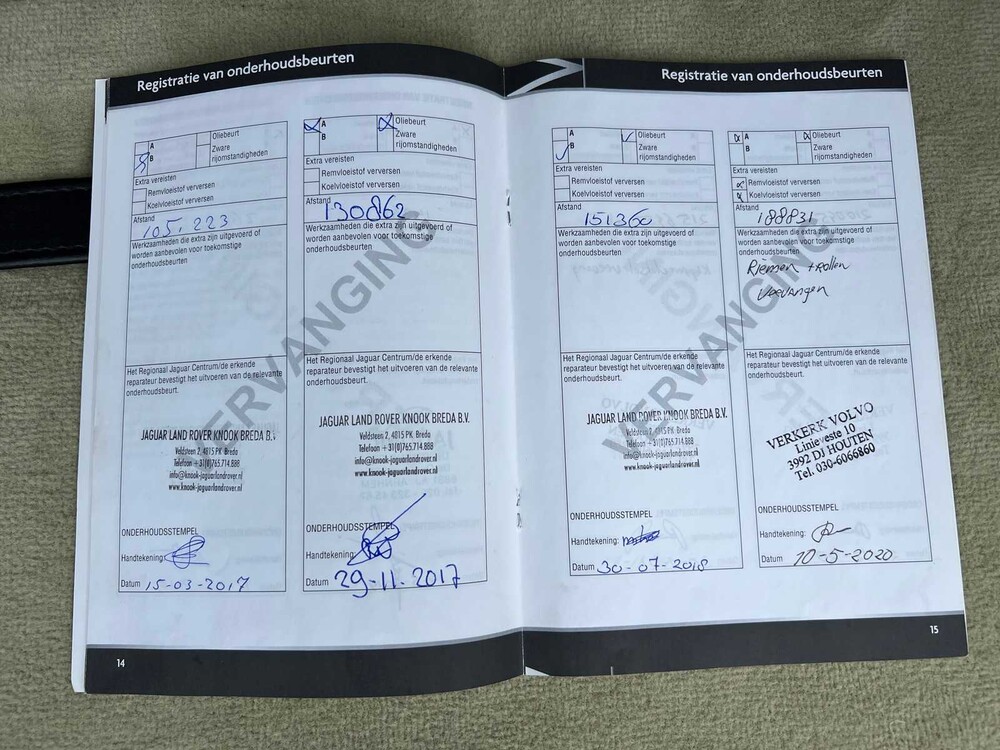 Registratie van onderhoudsbeurten
A
B
Oliebeurt
Zware
rijomstandigheden
Extra vereisten
Remvloeistof verversen
Koelvloeistof verversen
Afstand
105.223
Werkzaamheden die extra zijn uitgevoerd of
worden aanbevolen voor toekomstige
onderhoudsbeurten
Het Regionaal Jaguar Centrum/de erkende
reparateur bevestigt het uitvoeren van de relevante
onderhoudsbeurt.
JAGUAR LAND ROVER KNOOK BREDA B.V.
Veldsteen 2, 4815 PK Breda
Telefoon +31(0)765.714.888
info@knook-jaguarlandrover.nl
www.knook-jaguarlandrover.nl
ONDERHOUDSSTEMPEL
Handtekening:
Datum 15-03-2017
A
B
Oliebeurt
Zware
rijomstandigheden
Extra vereisten
Remvloeistof verversen
Koelvloeistof verversen
Afstand
130862
Werkzaamheden die extra zijn uitgevoerd of
worden aanbevolen voor toekomstige
onderhoudsbeurten
Het Regionaal Jaguar Centrum/de erkende
reparateur bevestigt het uitvoeren van de relevante
onderhoudsbeurt.
JAGUAR LAND ROVER KNOOK BREDA B.V.
Veldsteen 2, 4815 PK Breda
Telefoon +31(0)765.714.888
info@knook-jaguarlandrover.nl
www.knook-jaguarlandrover.nl
ONDERHOUDSSTEMPEL
Handtekening:
Datum 29-11-2017
VERVANGING
14
Registratie van onderhoudsbeurten
A
B
Oliebeurt
Zware
rijomstandigheden
Extra vereisten
Remvloeistof verversen
Koelvloeistof verversen
Afstand
151360
Werkzaamheden die extra zijn uitgevoerd of
worden aanbevolen voor toekomstige
onderhoudsbeurten
Het Regionaal Jaguar Centrum/de erkende
reparateur bevestigt het uitvoeren van de relevante
onderhoudsbeurt.
JAGUAR LAND ROVER KNOOK BREDA B.V.
Veldsteen 2, 4815 PK Breda
Telefoon +31(0)765.714.888
info@knook-jaguarlandrover.nl
www.knook-jaguarlandrover.nl
ONDERHOUDSSTEMPEL
Handtekening:
Datum 30-07-2018
A
B
Oliebeurt
Zware
rijomstandigheden
Extra vereisten
Remvloeistof verversen
Koelvloeistof verversen
Afstand
188831
Werkzaamheden die extra zijn uitgevoerd of
worden aanbevolen voor toekomstige
onderhoudsbeurten
Riemen + rollen
vervangen
Het Regionaal Jaguar Centrum/de erkende
reparateur bevestigt het uitvoeren van de relevante
onderhoudsbeurt.
VERKERK VOLVO
Linieveste 10
3992 DJ HOUTEN
Tel. 030-6066860
ONDERHOUDSSTEMPEL
Handtekening:
Datum 10-5-2020
VERVANGING
15